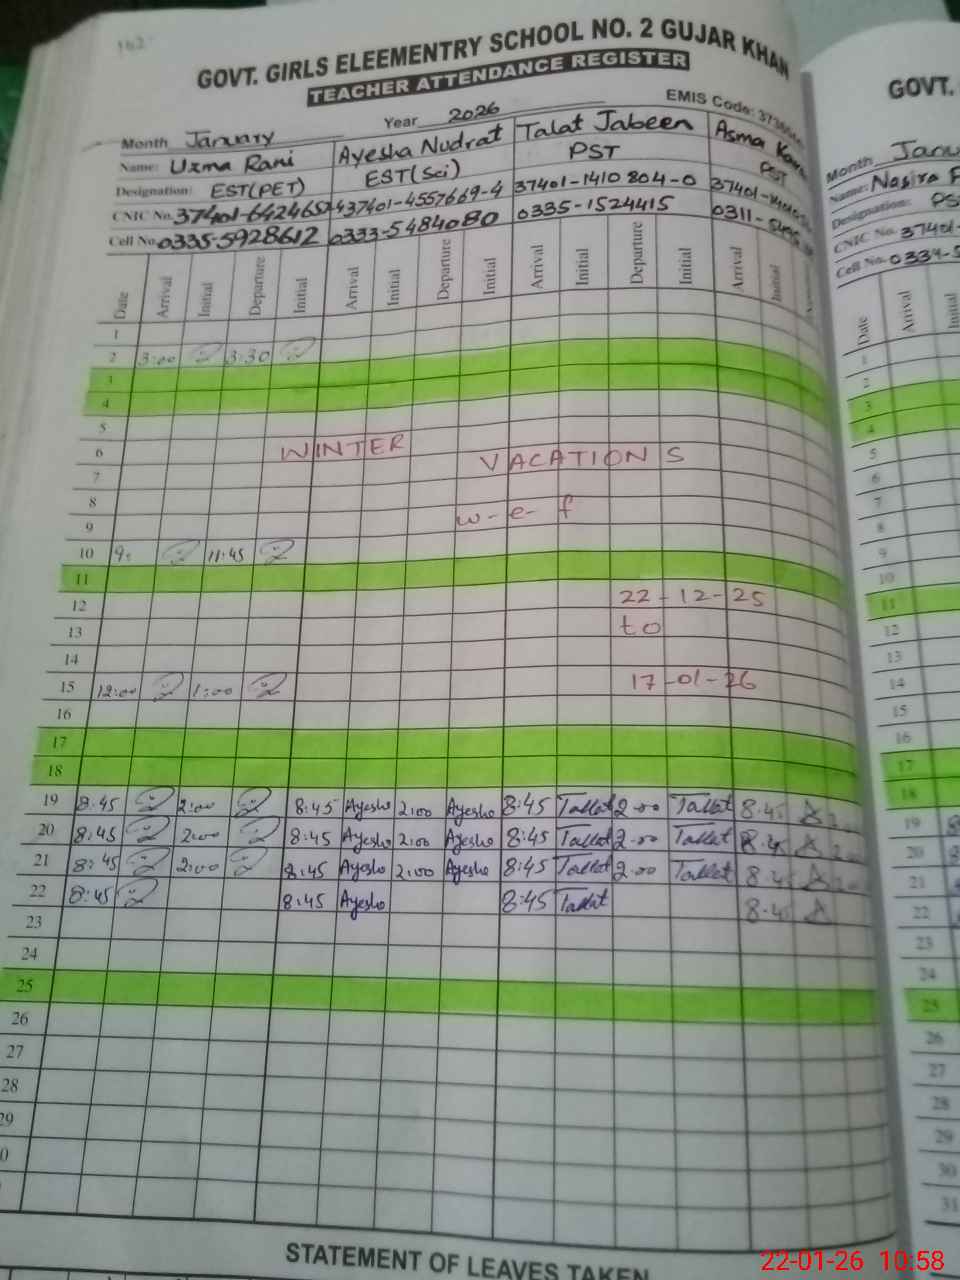 162
GOVT. GIRLS ELEEMENTRY SCHOOL NO. 2 GUJAR KHAN
TEACHER ATTENDANCE REGISTER
EMIS Code:
Month January Year 2026
Name: Uzma Rani Ayesha Nudrat Talat Jabeen Asma
Designation: EST(PET) EST(Sci) PST PST
CNIC No. 37401-6424652-4 37401-4557669-4 37401-1410804-0 37401-
Cell No. 0335-5928612 0333-5484080 0335-1524415 0311-
Date Arrival Initial Departure Initial Arrival Initial Departure Initial Arrival Initial Departure Initial Arrival Initial
1
2 3:00 3:30
3
4
5
6 WINTER VACATIONS
7
8
9 w-e-f
10 9: 11:45
11
12 22-12-25
13 to
14
15 12:00 1:00 17-01-26
16
17
18
19 8:45 2:00 8:45 Ayesha 2:00 Ayesha 8:45 Tallat 2:00 Tallat 8:45
20 8:45 2:00 8:45 Ayesha 2:00 Ayesha 8:45 Tallat 2:00 Tallat 8:45
21 8:45 2:00 8:45 Ayesha 2:00 Ayesha 8:45 Tallat 2:00 Tallat 8:45
22 8:45 8:45 Ayesha 8:45 Tallat 8:45
23
24
25
26
27
28
29
0
STATEMENT OF LEAVES TAKEN
GOVT.
Month
Name: Nasira
Designation: PS
CNIC No. 37401-
Cell No. 0334-5
Date Arrival Initial
1
2
3
4
5
6
7
8
9
10
11
12
13
14
15
16
17
18
19
20
21
22
23
24
25
26
27
28
29
30
31
22-01-26 10:58